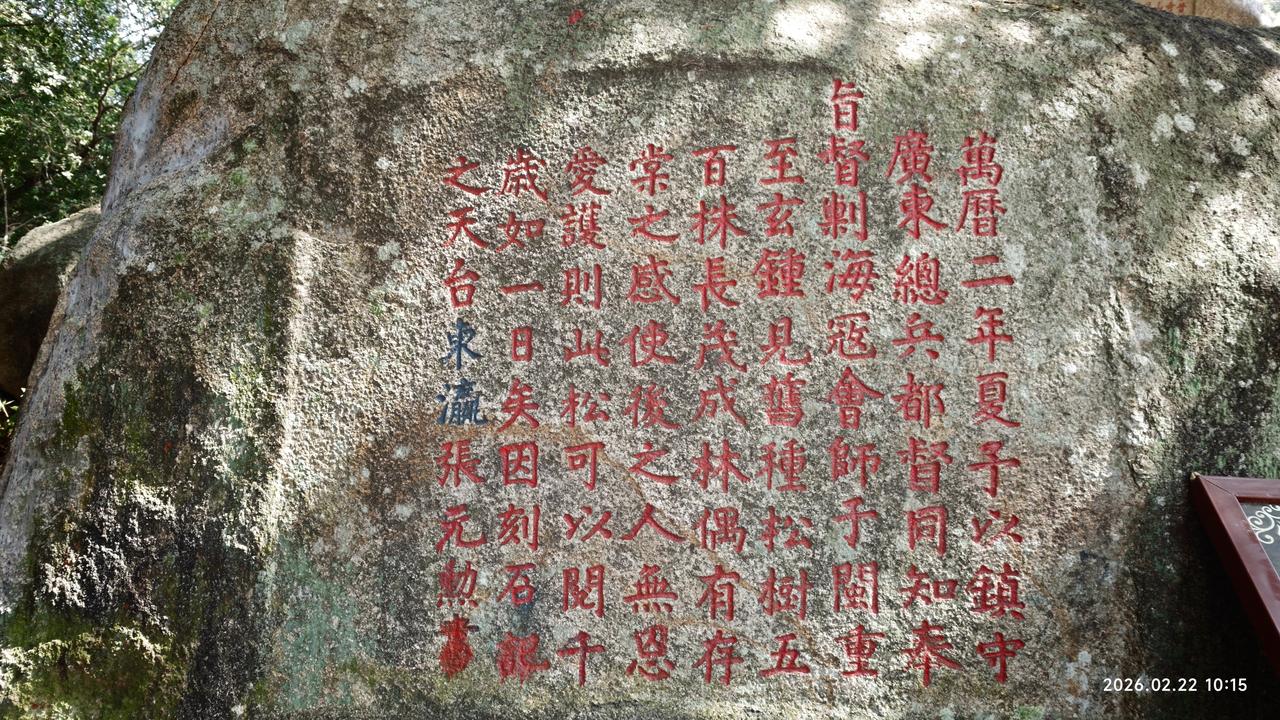 萬曆二年夏予以鎮守
廣東總兵都督同知奉
旨督剿海寇會師于閩重
至玄鍾見舊種松樹五
百株長茂成林偶有存
棠之感使後之人無忽
愛護則此松可以閱千
歲如一日矣因刻石記
之天台東瀛張元勳書
2026.02.22 10:15